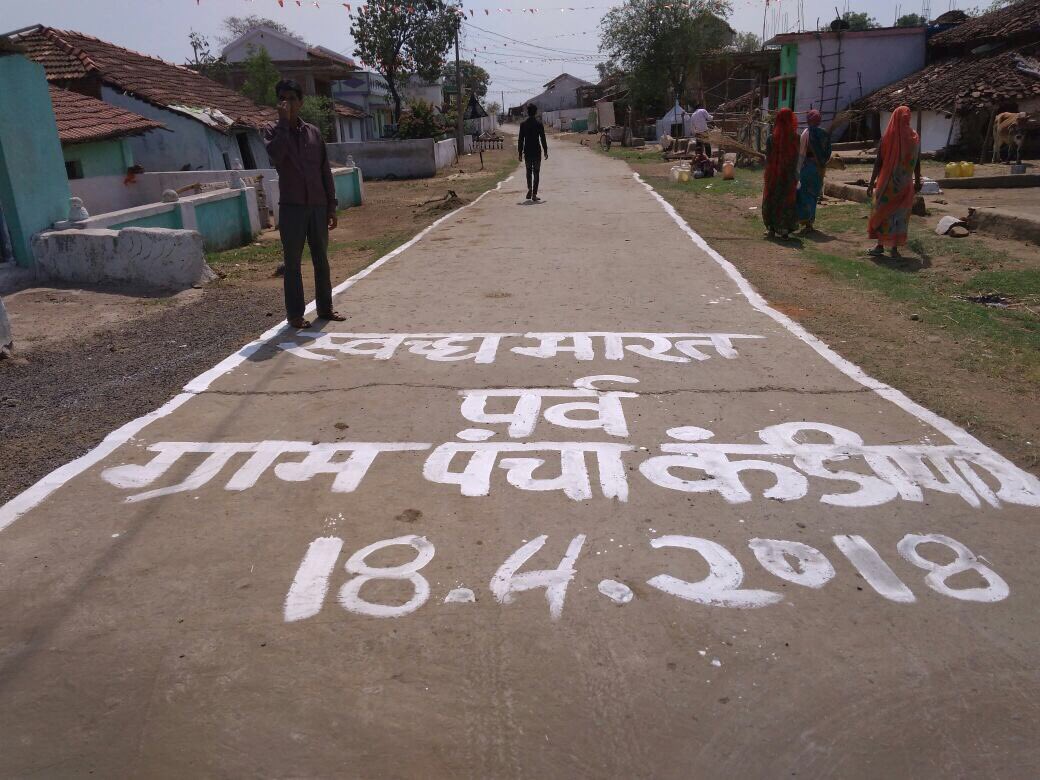 स्वच्छ भारत
पर्व
ग्राम पंचा कंडीपार
18.4.2018